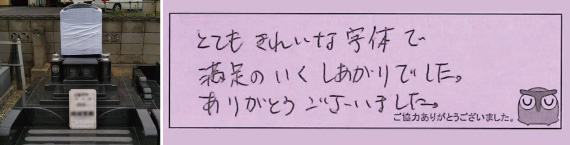 とてもきれいな字体で
満足のいくしあがりでした。
ありがとうございました。
ご協力ありがとうございました。